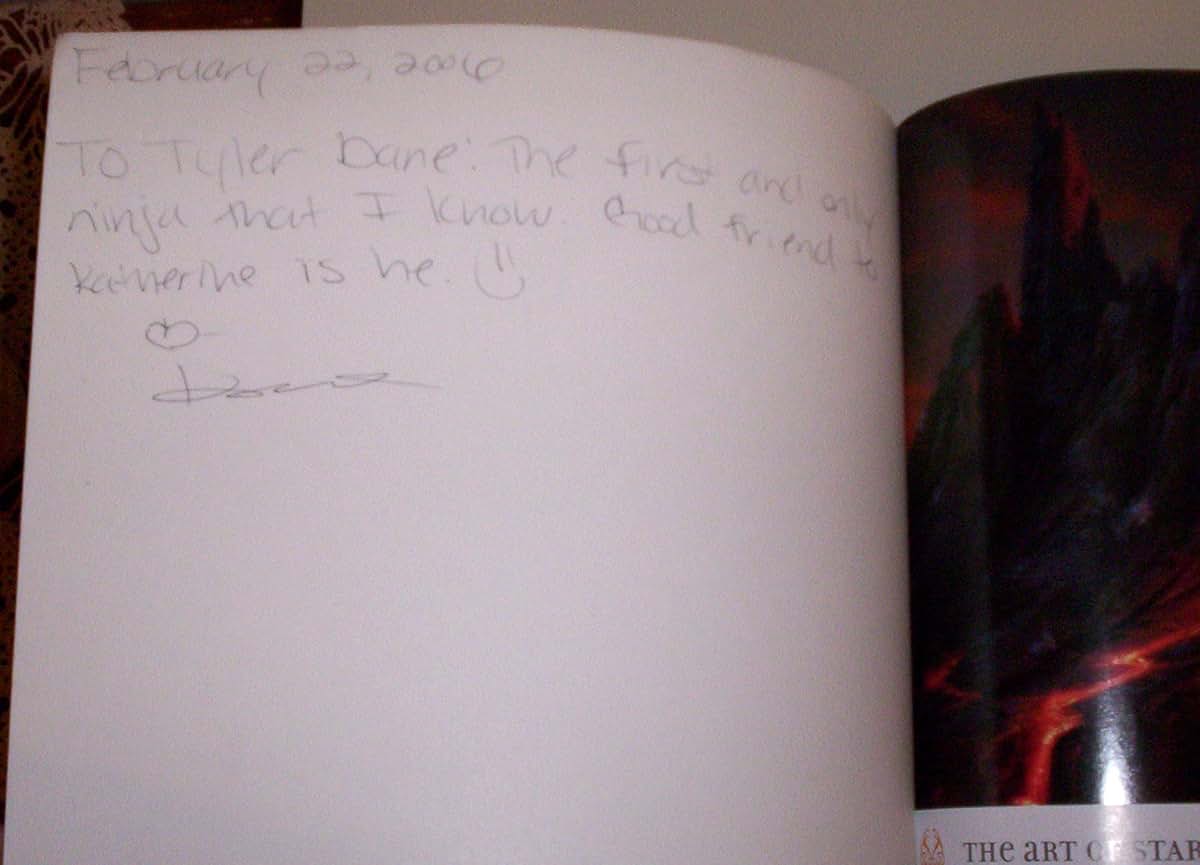 February 22, 2006
To Tyler Dane: The first and only
ninja that I know. Good friend to
Katherine is he.
THE ART OF STAR